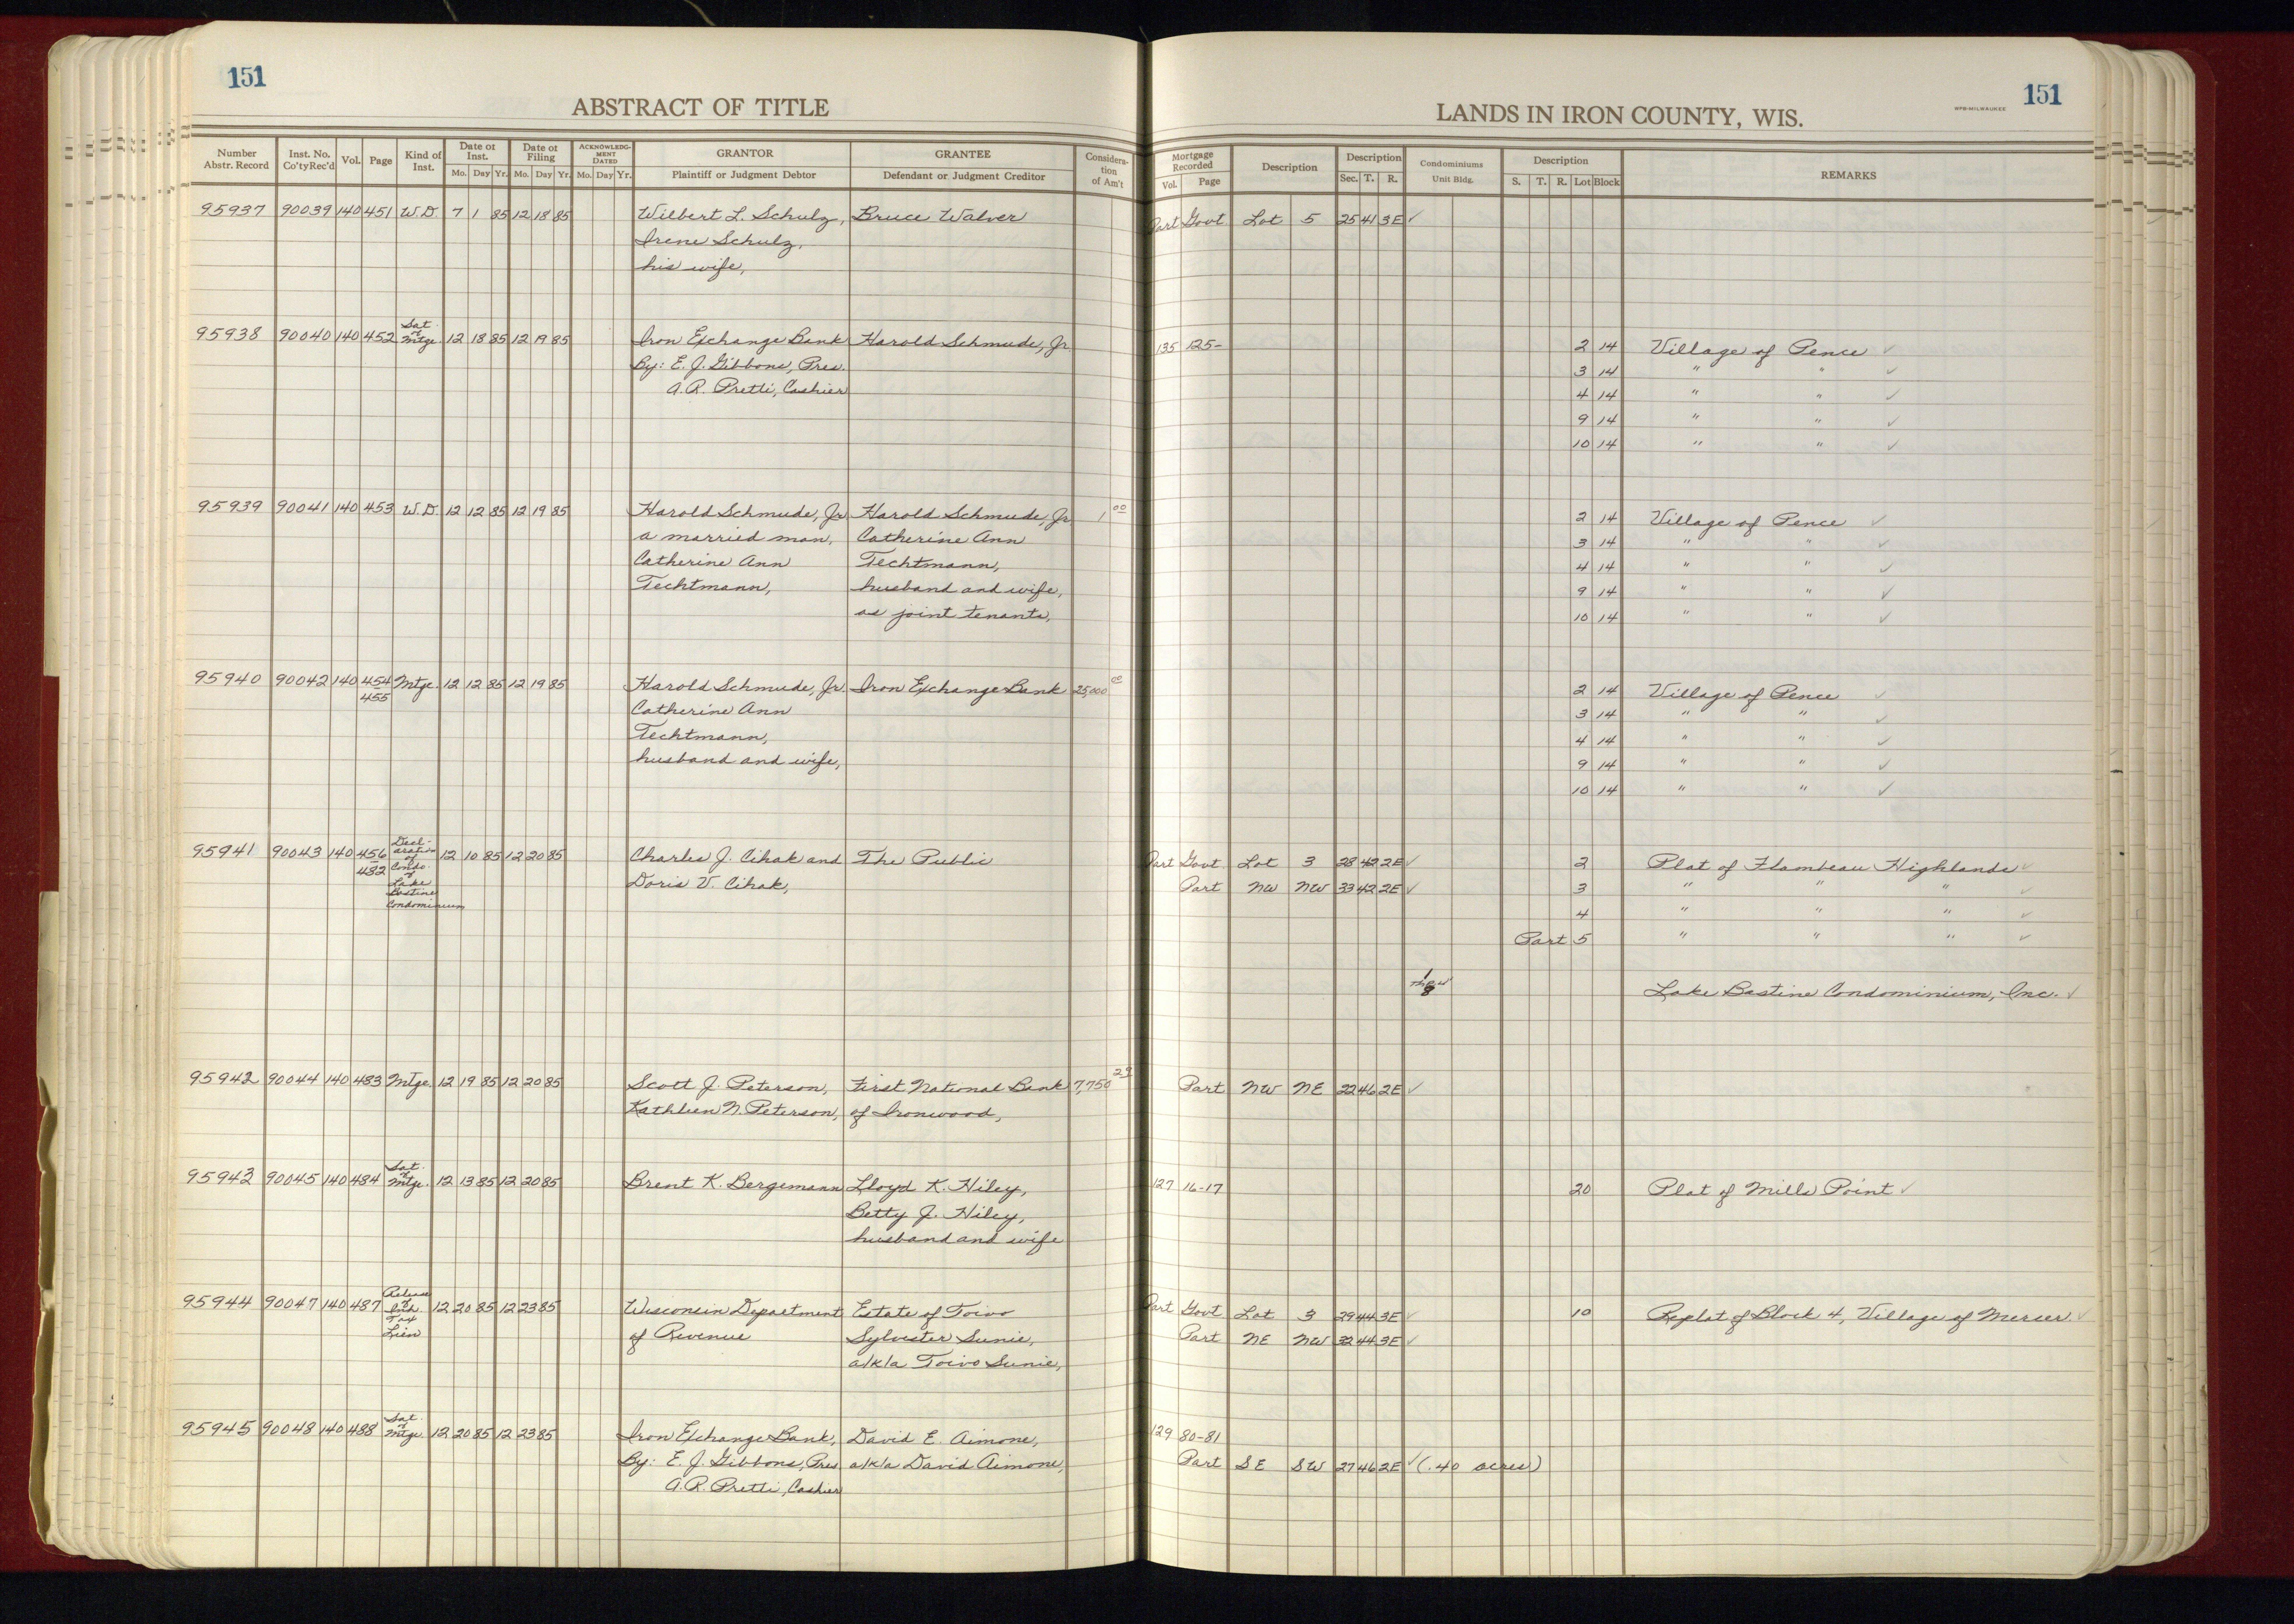 151
ABSTRACT OF TITLE
Number Abstr. Record | Inst. No. Co'ty Rec'd | Vol. | Page | Kind of Inst. | Date of Inst. Mo. Day Yr. | Date of Filing Mo. Day Yr. | ACKNOWLEDGMENT DATED Mo. Day Yr. | GRANTOR Plaintiff or Judgment Debtor | GRANTEE Defendant or Judgment Creditor | Consideration of Am't
95937 90039 140 451 W.D. 7 1 85 12 18 85 Wilbert L. Schulz, Bruce Walver
Irene Schulz,
his wife,
95938 90040 140 452 Sat. of Mtge. 12 18 85 12 19 85 Iron Exchange Bank Harold Schmude, Jr.
By: E. J. Gibbons, Pres.
A.R. Pretti, Cashier
95939 90041 140 453 W.D. 12 12 85 12 19 85 Harold Schmude, Jr. Harold Schmude, Jr. 1 00
a married man, Catherine Ann
Catherine Ann Techtmann,
Techtmann, husband and wife,
as joint tenants,
95940 90042 140 454 455 Mtge. 12 12 85 12 19 85 Harold Schmude, Jr. Iron Exchange Bank 25,000 00
Catherine Ann
Techtmann,
husband and wife,
95941 90043 140 456 482 Declaration of Condo. of Lake Bastine Condominium 12 10 85 12 20 85 Charles J. Cihak and The Public
Doris V. Cihak,
95942 90044 140 483 Mtge. 12 19 85 12 20 85 Scott J. Peterson, First National Bank 7,750 29
Kathleen N. Peterson, of Ironwood,
95943 90045 140 484 Sat. of Mtge. 12 13 85 12 20 85 Brent K. Bergemann Lloyd K. Hiley,
Betty J. Hiley,
husband and wife
95944 90047 140 487 Release of Inh. Tax Lien 12 20 85 12 23 85 Wisconsin Department Estate of Toivo
of Revenue Sylvester Sunie,
a/k/a Toivo Sunie,
95945 90048 140 488 Sat. of Mtge. 12 20 85 12 23 85 Iron Exchange Bank, David E. Aimone,
By: E. J. Gibbons, Pres a/k/a David Aimone,
A.R. Pretti, Cashier
WPB-MILWAUKEE 151
LANDS IN IRON COUNTY, WIS.
Mortgage Recorded Vol. Page | Description | Description Sec. T. R. | Condominiums Unit Bldg. | Description S. T. R. Lot Block | REMARKS
Part Govt Lot 5 25 41 3E ✓
135 125- 2 14 Village of Pence ✓
3 14 " " ✓
4 14 " " ✓
9 14 " " ✓
10 14 " " ✓
2 14 Village of Pence ✓
3 14 " " ✓
4 14 " " ✓
9 14 " " ✓
10 14 " " ✓
2 14 Village of Pence ✓
3 14 " " ✓
4 14 " " ✓
9 14 " " ✓
10 14 " " ✓
Part Govt. Lot 3 28 42 2E ✓ 2 Plat of Flambeau Highlands ✓
Part NW NW 33 42 2E ✓ 3 " " " ✓
4 " " " ✓
Part 5 " " " ✓
1 thru 8 Lake Bastine Condominium, Inc. ✓
Part NW NE 22 46 2E ✓
127 16-17 20 Plat of Mills Point ✓
Part Govt Lot 3 29 44 3E ✓ 10 Replat of Block 4, Village of Mercer ✓
Part NE NW 32 44 3E ✓
129 80-81
Part SE SW 27 46 2E ✓ (.40 acres)